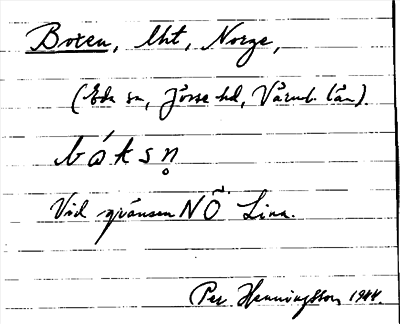 Boxen, lht, Norge,
(Eda sn, Jösse hd, Värml. län).
bók s n̥
Vid gränsen NÖ Linn.
Per Henningsson 1944.